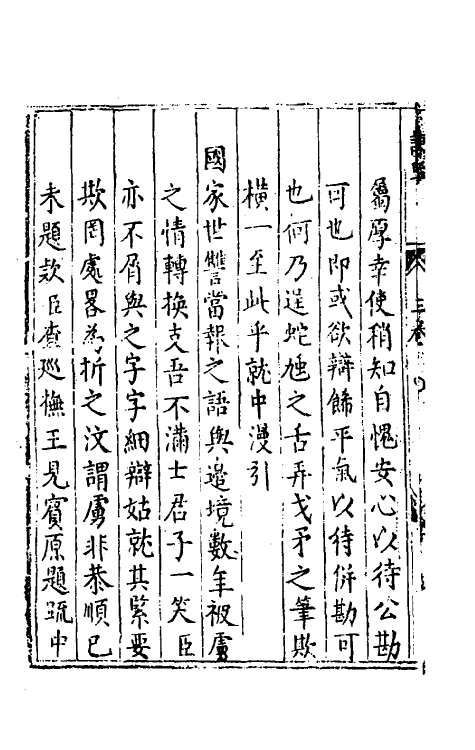 屬厚幸使稍知自愧安心以待公勘
可也即或欲辯餙平氣以待併勘可
也何乃逞蛇虺之舌弄戈矛之筆欺
橫一至此乎就中漫引
國家世讐當報之語與邉境數年被虜
之情轉換支吾不滿士君子一笑臣
亦不屑與之字字細辯姑就其緊要
欺罔處畧為折之汶謂虜非恭順已
未題款臣查巡撫王見賔原題疏中
三卷